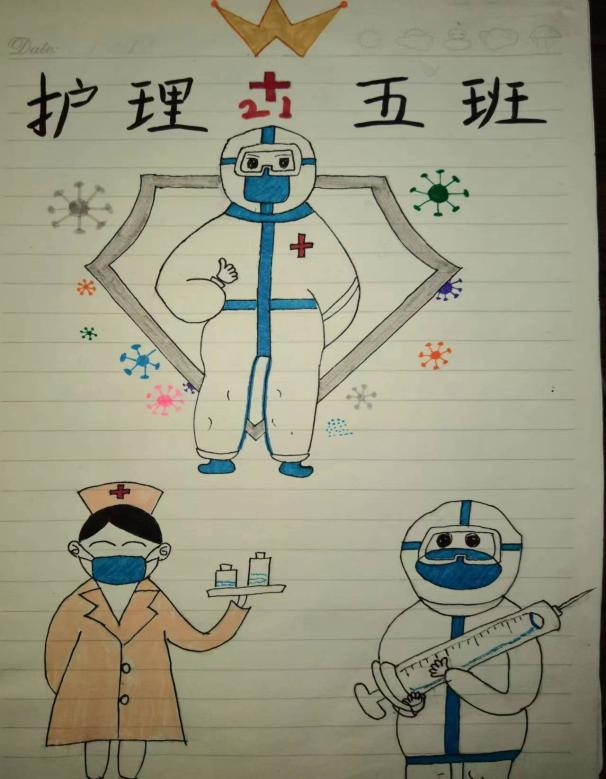 Date:
护理 21 五班